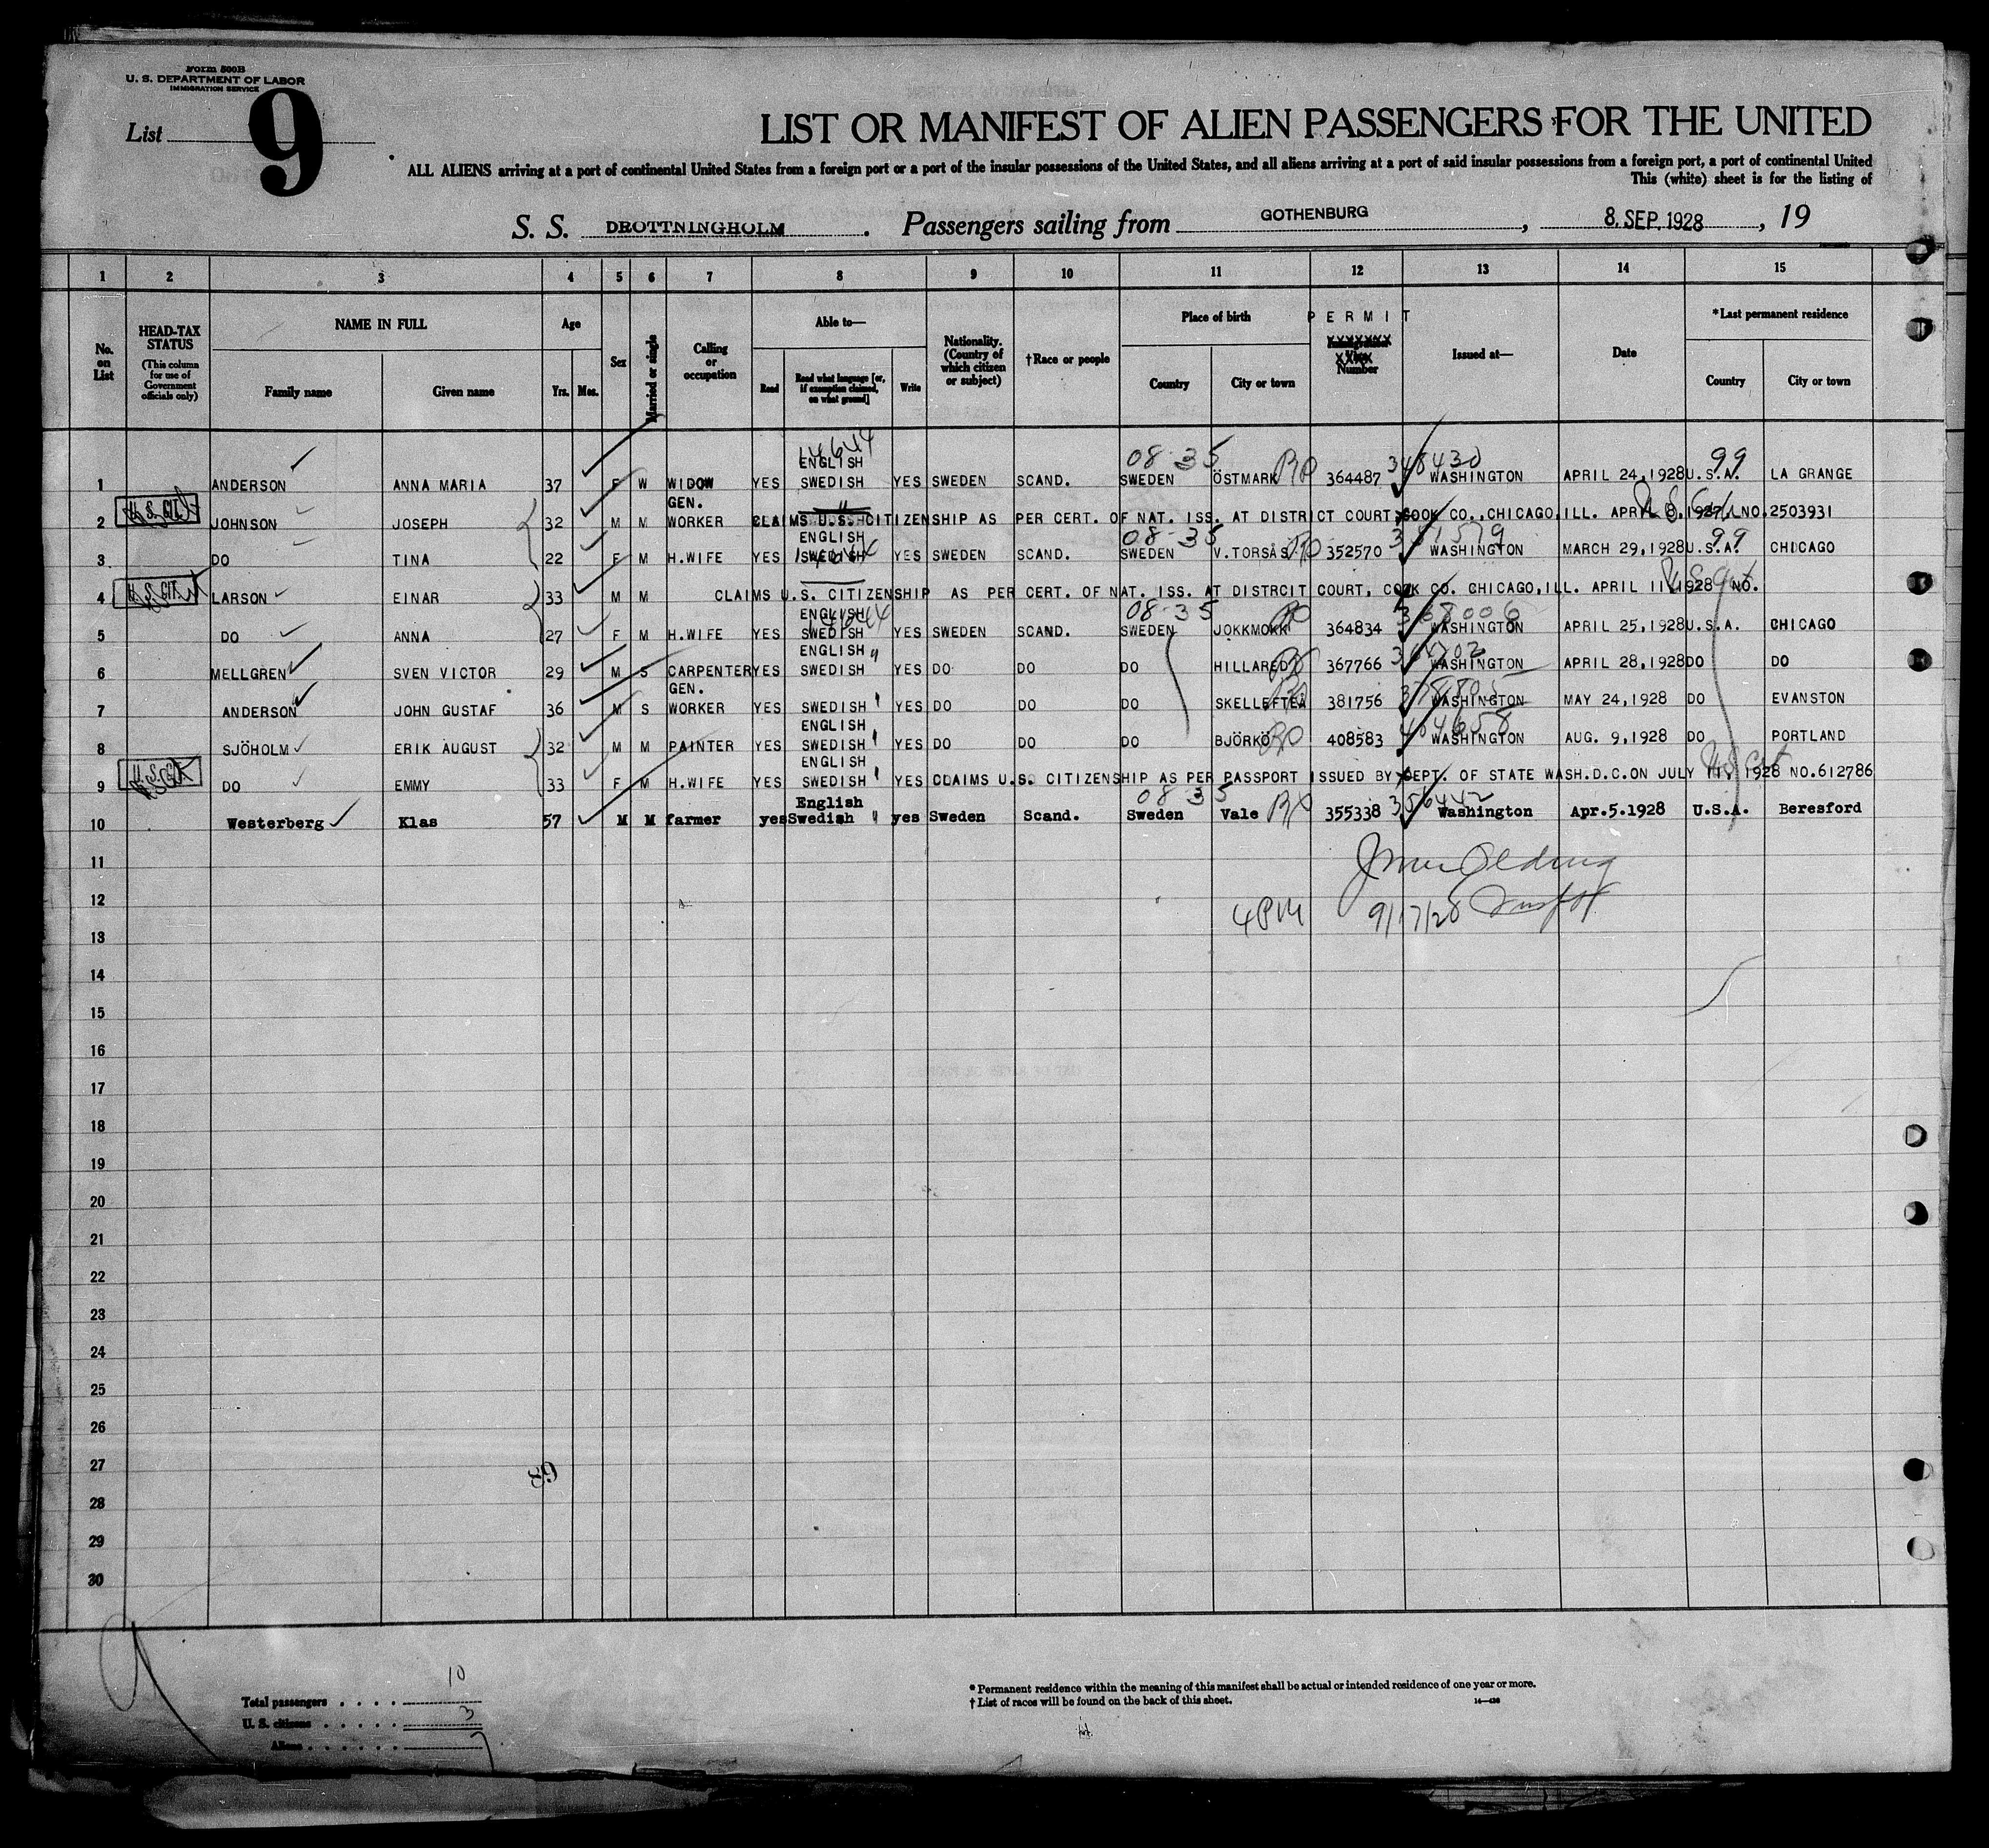 Form 500B
U. S. DEPARTMENT OF LABOR
IMMIGRATION SERVICE
List 9
LIST OR MANIFEST OF ALIEN PASSENGERS FOR THE UNITED
ALL ALIENS arriving at a port of continental United States from a foreign port or a port of the insular possessions of the United States, and all aliens arriving at a port of said insular possessions from a foreign port, a port of continental United
This (white) sheet is for the listing of
S. S. DROTTNINGHOLM . Passengers sailing from GOTHENBURG , 8. SEP. 1928 , 19
1 2 3 4 5 6 7 8 9 10 11 12 13 14 15
No. on List
HEAD-TAX STATUS (This column for use of Government officials only)
NAME IN FULL
Family name Given name
Age
Yrs. Mos.
Sex
Married or single
Calling or occupation
Able to—
Read Read what language [or, if exemption claimed, on what ground] Write
Nationality. (Country of which citizen or subject)
†Race or people
Place of birth
Country City or town
PERMIT
Number
Issued at—
Date
*Last permanent residence
Country City or town
14644 08 35 348430 99
1 ANDERSON ANNA MARIA 37 F W WIDOW YES ENGLISH SWEDISH YES SWEDEN SCAND. SWEDEN ÖSTMARK RP 364487 WASHINGTON APRIL 24,1928 U.S.A. LA GRANGE
U.S. CIT.
2 JOHNSON JOSEPH 32 M M GEN. WORKER CLAIMS U.S. CITIZENSHIP AS PER CERT. OF NAT. ISS. AT DISTRICT COURT, COOK CO., CHICAGO, ILL. APRIL 8, 1927, NO. 2503931
08 35 99
3 DO TINA 22 F M H.WIFE YES ENGLISH SWEDISH YES SWEDEN SCAND. SWEDEN V.TORSÅS 352570 WASHINGTON MARCH 29,1928 U.S.A. CHICAGO
U.S. CIT.
4 LARSON EINAR 33 M M CLAIMS U.S. CITIZENSHIP AS PER CERT. OF NAT. ISS. AT DISTRCIT COURT, COOK CO. CHICAGO, ILL. APRIL 11, 1928 NO.
08 35 368006
5 DO ANNA 27 F M H.WIFE YES ENGLISH SWEDISH YES SWEDEN SCAND. SWEDEN JOKKMOKK 364834 WASHINGTON APRIL 25,1928 U.S.A. CHICAGO
6 MELLGREN SVEN VICTOR 29 M S CARPENTER YES ENGLISH SWEDISH " YES DO DO DO HILLARED 367766 WASHINGTON APRIL 28,1928 DO DO
7 ANDERSON JOHN GUSTAF 36 M S GEN. WORKER YES SWEDISH YES DO DO DO SKELLEFTEA 381756 WASHINGTON MAY 24,1928 DO EVANSTON
8 SJÖHOLM ERIK AUGUST 32 M M PAINTER YES ENGLISH SWEDISH YES DO DO DO BJÖRKÖ 408583 WASHINGTON AUG. 9,1928 DO PORTLAND
U.S. CIT.
9 DO EMMY 33 F M H.WIFE YES ENGLISH SWEDISH YES CLAIMS U.S. CITIZENSHIP AS PER PASSPORT ISSUED BY DEPT. OF STATE WASH.D.C.ON JULY 11, 1928 NO.612786
08 35 356442
10 Westerberg Klas 57 M M farmer yes English Swedish " yes Sweden Scand. Sweden Vale 355338 Washington Apr.5.1928 U.S.A. Beresford
11
12
4 PM 9/17/28
13
14
15
16
17
18
19
20
21
22
23
24
25
26
27
28
29
30
Total passengers . . . . 10
U. S. citizens . . . . . 3
Aliens . . . . . . 7
* Permanent residence within the meaning of this manifest shall be actual or intended residence of one year or more.
† List of races will be found on the back of this sheet.